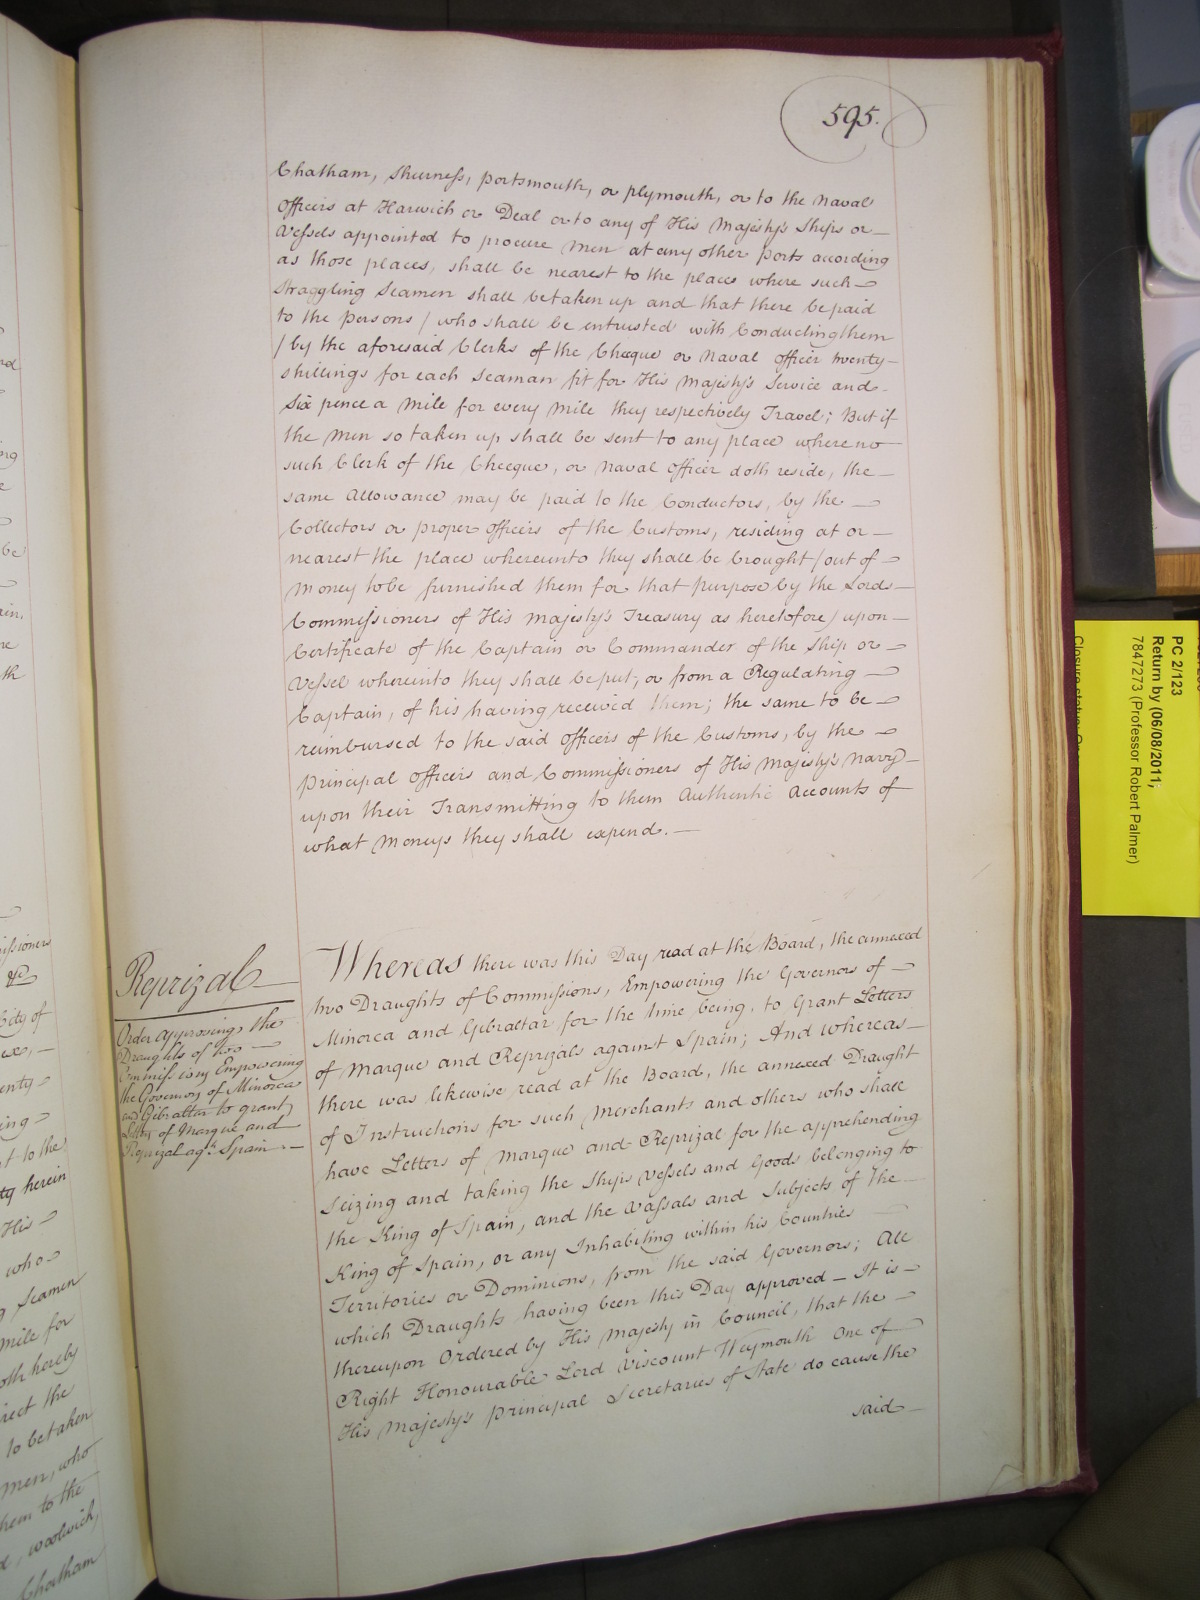 595.
Chatham, Sheerness, Portsmouth, or Plymouth, or to the Naval
Officers at Harwich or Deal or to any of His Majesty's Ships or
Vessels appointed to procure Men at any other Ports according
as those places, shall be nearest to the places where such
Straggling Seamen shall be taken up and that there be paid
to the Persons / who shall be entrusted with Conducting them
/ by the aforesaid Clerks of the Cheque or Naval Officer twenty
shillings for each Seaman fit for His Majesty's Service and
Six pence a Mile for every Mile they respectively Travel; But if
the Men so taken up shall be sent to any place where no
such Clerk of the Cheeque, or Naval Officer doth reide, the
same Allowance may be paid to the Conductors, by the
Collectors or proper Officers of the Customs, residing at or
nearest the place whereunto they shall be brought / out of
Money to be furnished them for that purpose by the Lords
Commissioners of His Majesty's Treasury as heretofore / upon
Certificate of the Captain or Commander of the Ship or
Vessel whereinto they shall be put, or from a Regulating
Captain, of his having received them; the same to be
reimbursed to the said Officers of the Customs, by the
Principal Officers and Commissioners of His Majesty's Navy
upon their Transmitting to them Authentic Accounts of
what Moneys they shall expend.
Reprizal
Order approving the
Draughts of two
Commissions Empowering
the Governors of Minorca
and Gibraltar to grant
Letters of Marque and
Reprizal agt. Spain
Whereas there was this Day read at the Board, the annexed
two Draughts of Commissions, Empowering the Governors of
Minorca and Gibraltar for the time being, to Grant Letters
of Marque and Reprizals against Spain; And whereas
there was likewise read at the Board, the annexed Draught
of Instructions for such Merchants and others who shall
have Letters of Marque and Reprizal for the apprehending
Seizing and taking the Ships Vessels and Goods belonging to
the King of Spain, and the Vassals and Subjects of the
King of Spain, or any Inhabiting within his Countries
Territories or Dominions, from the said Governors; All
which Draughts having been this Day approved – It is
thereupon Ordered by His Majesty in Council, that the
Right Honourable Lord Viscount Weymouth One of
His Majesty's Principal Secretaries of State do cause the
said
PC 2/123
Return by (06/08/2011;
7847273 (Professor Robert Palmer)